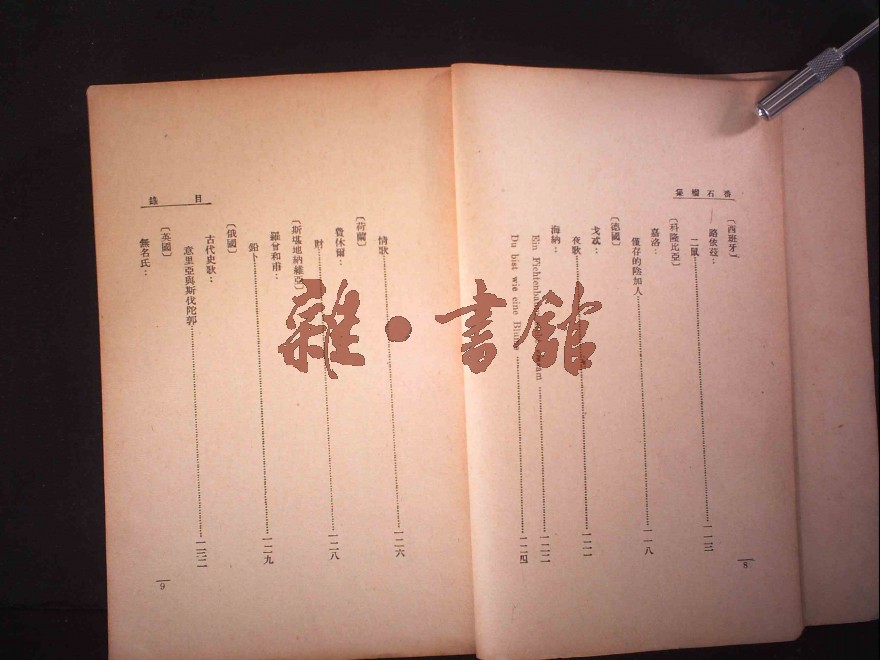 番石榴集
〔西班牙〕
路依茲:
二鼠 一一三
〔科隆比亞〕
嘉洛:
僅存的陰加人 一一八
〔德國〕
戈忒:
夜歌 一二一
海納:
Ein Fichtenba am 一二二
Du bist wie eine Blu 一二四
8
目錄
情歌 一二六
〔荷蘭〕
費休爾:
財 一二八
〔斯堪地納維亞〕
羅曾和甫:
鉛卜 一二九
〔俄國〕
古代史歌:
意里亞與斯伐陀郭 一三二
〔英國〕
無名氏:
9
雜·書館